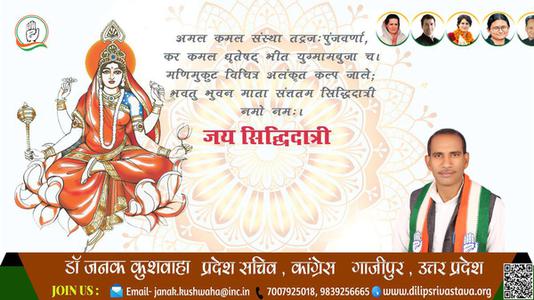 अमल कमल संस्था तद्रजःपुंजवर्णा,
कर कमल धृतेषट् भीत युग्मामबुजा च।
मणिमुकुट विचित्र अलंकृत कल्प जाले;
भवतु भुवन माता संत्ततम सिद्धिदात्री
नमो नमः।
जय सिद्धिदात्री
डॉ जनक कुशवाहा प्रदेश सचिव , कांग्रेस गाजीपुर , उत्तर प्रदेश
JOIN US : Email- janak.kushwaha@inc.in 7007925018, 9839256665 www.dilipsrivastava.org